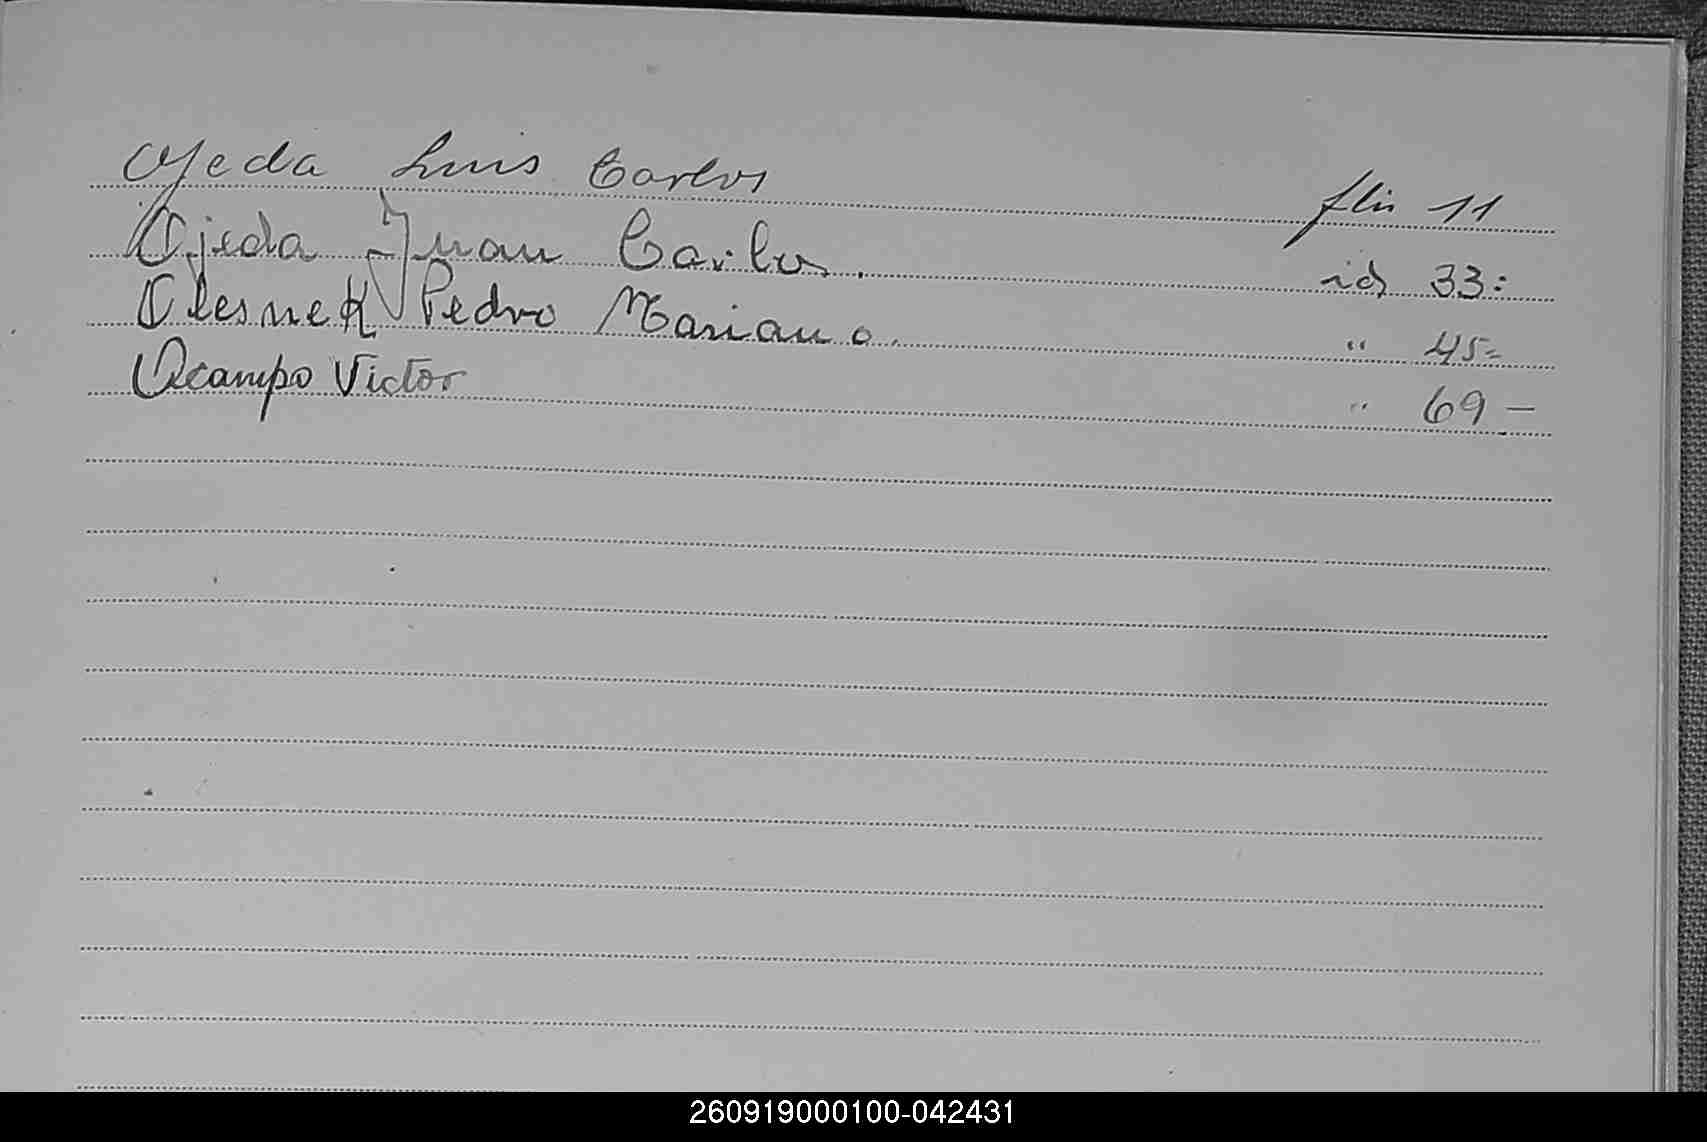 Ojeda Luis Carlos flio 11
Ojeda Juan Carlos. id 33:
Olesnek Pedro Mariano. " 45=
Ocampo Victor " 69 -
260919000100-042431